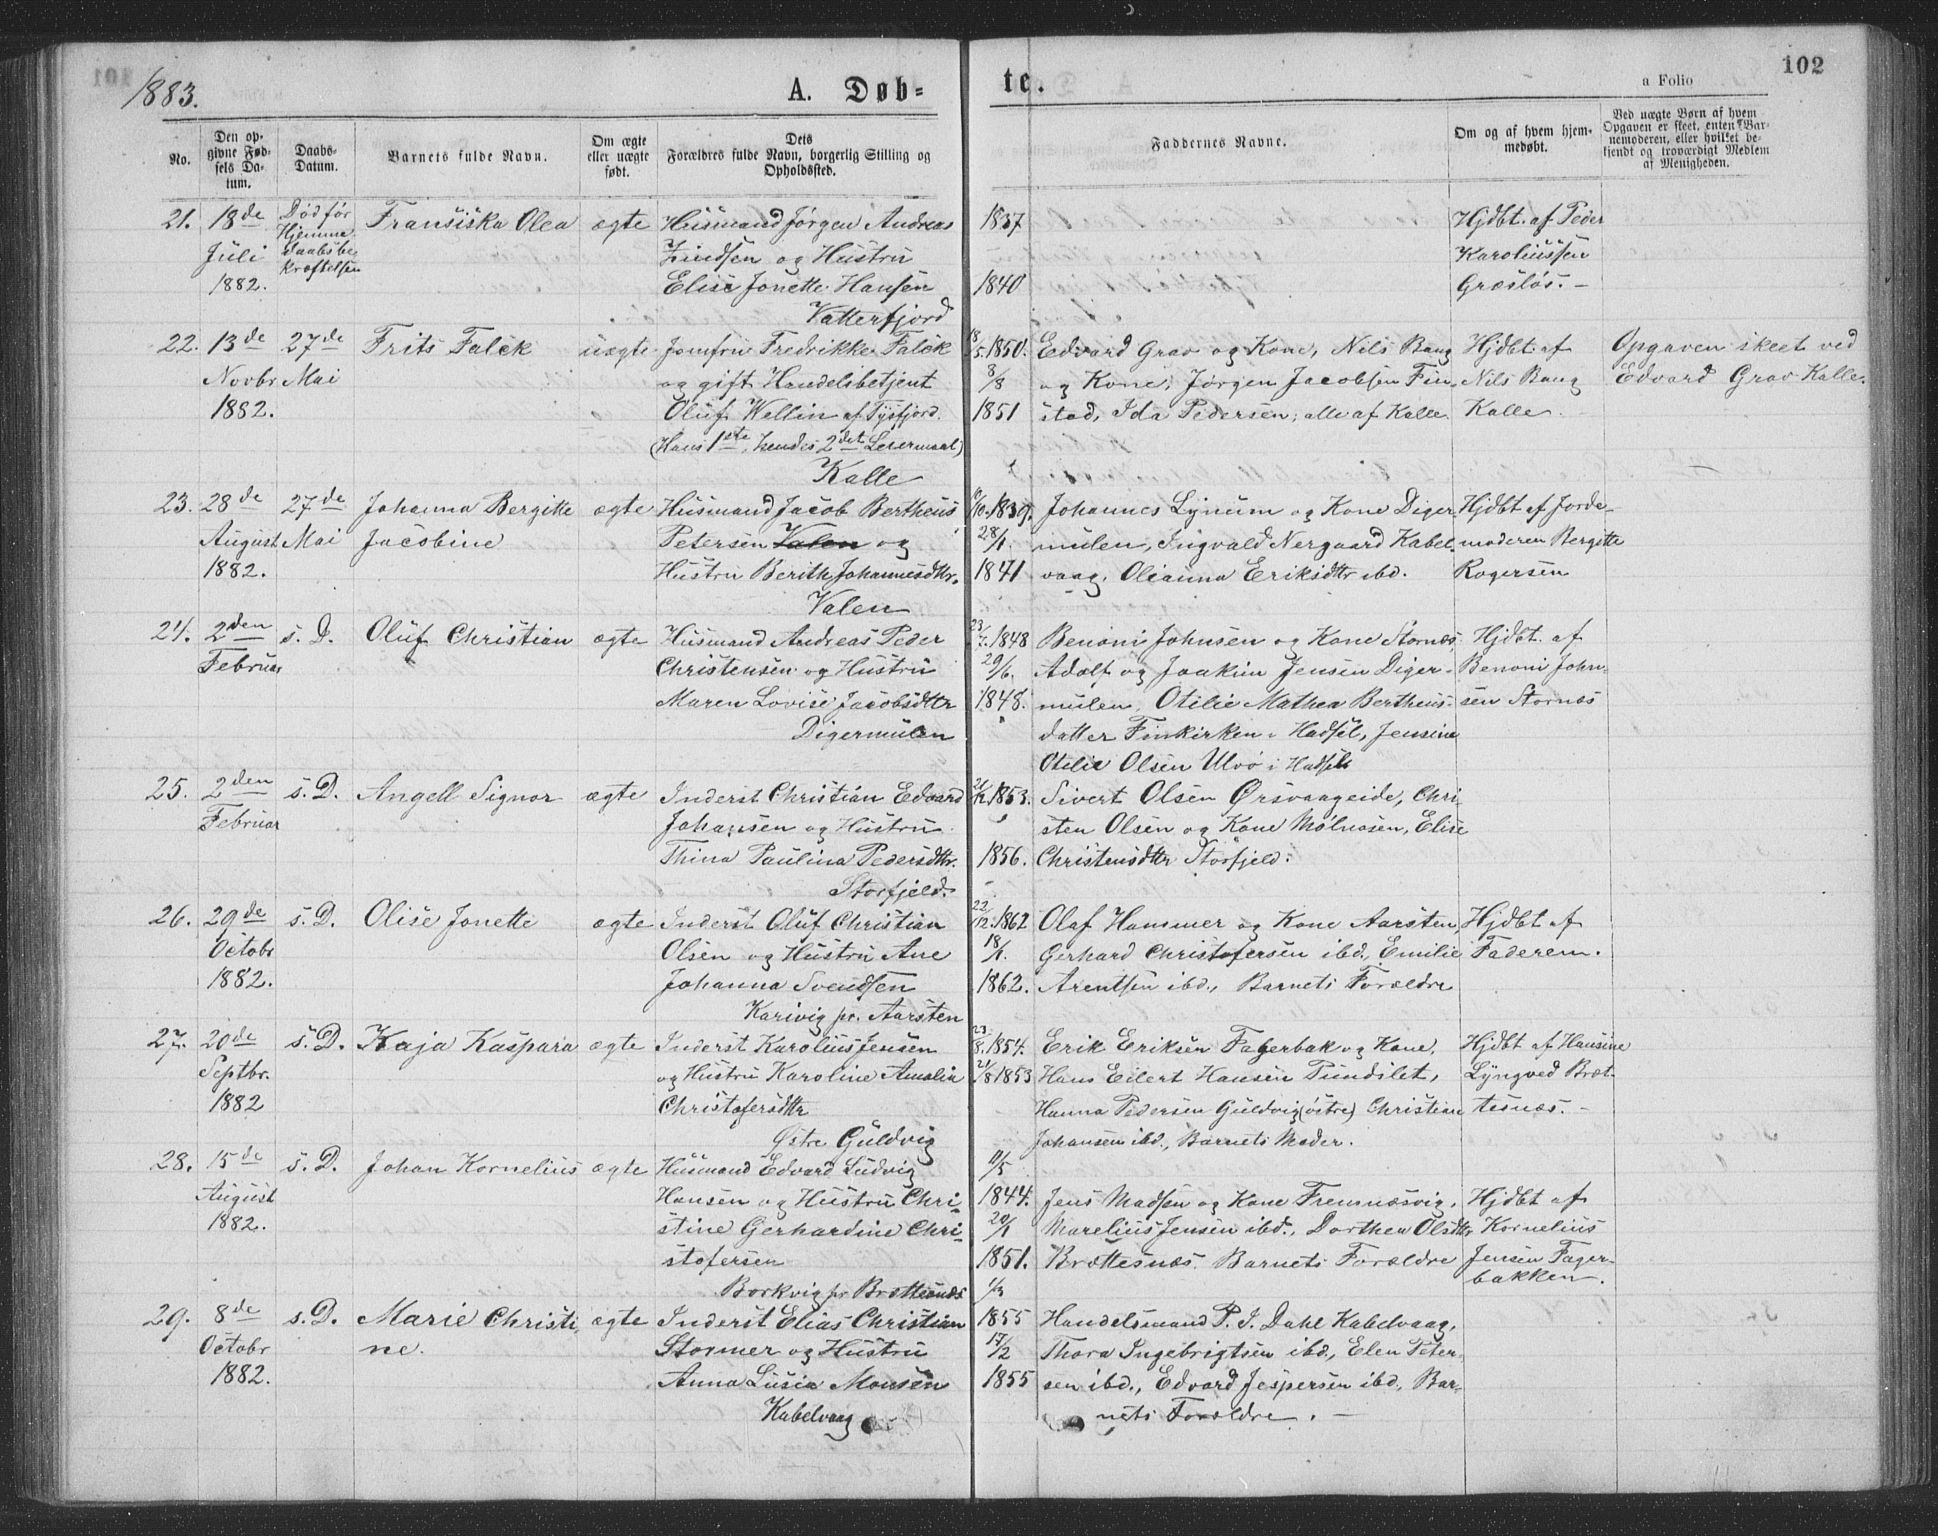 1883.
A. Døb=
te.
a Folio
102
No.
Den op-
givne Fød-
sels Da-
tum.
Daabs-
Datum.
Barnets fulde Navn.
Om ægte
eller uægte
født.
Dets
Forældres fulde Navn, borgerlig Stilling og
Opholdssted.
Faddernes Navne.
Om og af hvem hjem-
medøbt.
Ved uægte Børn af hvem
Opgaven er skeet, enten Bar-
nemoderen, eller hvilket be-
kjendt og troværdigt Medlem
af Menigheden.
21. 18de Død før Fransiska Olea ægte Husmand Jørgen Andreas 1837 Hjdbt. af Peder
Juli Hjemme og Hustru Karoliussen
1882. daabsbe Elise Jonette Hansen 1840 Græsløs. -
kræftelsen Vatterfjord
22. 13de 27de Frits Falck uægte Jomfru Fredrikke Falck 18/5 1850. Edvard Grav og Kone, Nils Bang Hjdbt. af Opgaven skeet ved
Novbr Mai og gift Handelsbetjent 8/8 og Kone, Jørgen Jacobsen Fin- Nils Bang Edvard Grav Kalle.
1882. Oluf Wellin af Tysfjord. 1851 stad, Ida Pedersen; alle af Kalle. Kalle.
(Hans 1ste, hendes 2det Leiermaal)
Kalle
23. 28de 27de Johanna Bergitte ægte Husmand Jacob Bertheus 1839. Johannes Lynum og Kone Diger- Hjdbt af Jorde-
August Mai Jacobine Petersen Valen og 28/1. mulen, Ingvald Nergaard Kabel- moderen Bergitte
1882. Hustru Berith Johannesdttr. 1841 vaag, Olianna Eriksdttr ibd. Rogersen
Valen
24. 2den s. D. Oluf Christian ægte Husmand Andreas Peder 1848 Benoni Johnsen og Kone Stornæs, Hjdbt. af
Februar Christensen og Hustru 29/6. Adolf og Joakim Jensen Diger- Benoni John-
Maren Lovise Jacobsdttr 1848. mulen, Otilie Mathea Bertheus- sen Stornæs
Digermulen datter Finkirken i Hadsel, Jensine
Otilie Olsen Ulvø i Hadsel
25. 2den s. D. Angell Signor ægte Inderst Christian Edvard 1853. Sivert Olsen Ørsvaageide, Chri-
Februar Johansen og Hustru sten Olsen og Kone Mølnosen, Elise
Thina Paulina Pedersdttr. 1856. Christensdttr Storfjeld.
Storfjeld.
26. 29de s. D. Olise Jonette ægte Inderst Oluf Christian 22/12. 1862 Olaf Hammer og Kone Aarsten, Hjdbt af
Octobr Olsen og Hustru Ane 18/1. Gerhard Christofersen ibd., Emilie Faderen.
1882. Johanna Svendsen 1862. Arentsen ibd., Barnets Forældre
Karivig pr. Aarsten
27. 20de s. D. Kaja Kaspara ægte Inderst Karolius Jensen 23/8. 1854. Erik Eriksen Fagerbak og Kone, Hjdbt af Hansine
Septbr. og Hustru Karoline Amalia 21/8 1853 Hans Eilert Hansen Pundslet, Lyngved Bret-
1882 Christofersdttr Hanna Pedersen Guldvig (østre) Christian tesnæs. -
Østre Guldvig Johansen ibd., Barnets Moder.
28. 15de s. D. Johan Kornelius ægte Husmand Edvard Ludvig 11/5
August Hansen og Hustru Chri- 1844. Jens Madsen og Kone Fremnæsvig, Hjdbt af
1882. stine Gerhardine Chri- 20/1 Marelius Jensen ibd., Dorthea Olsdttr Kornelius
stofersen 1851. Brettesnæs. Barnets Forældre Jensen Fager-
Borkvig pr Brettesnæs bakken.
29. 8de s. D. Marie Christi- ægte Inderst Elias Christian 1855 Handelsmand P. J. Dahl Kabelvaag,
Octobr ne. Stormer og Hustru 17/2 Thora Ingebrigtsen ibd., Elen Peter-
1882. Anna Lusia Monsen 1855 sen ibd., Edvard Jespersen ibd., Bar-
Kabelvaag nets Forældre. -